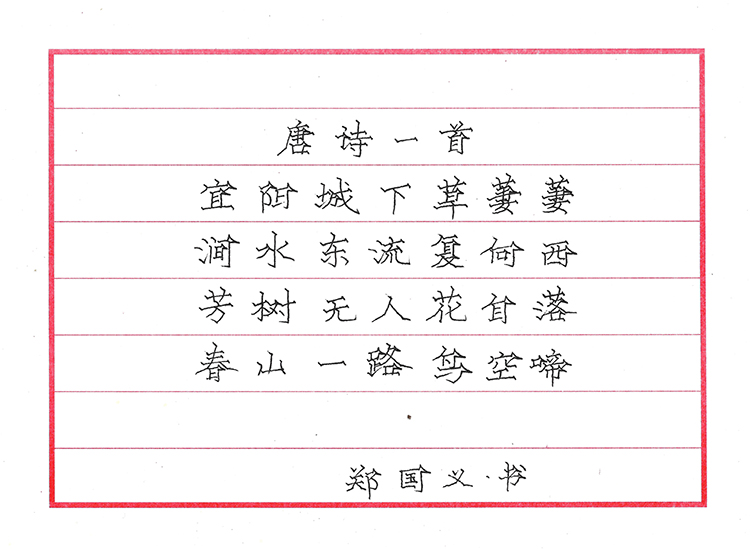 唐诗一首
宜阳城下草萋萋
涧水东流复向西
芳树无人花自落
春山一路鸟空啼
郑国义·书